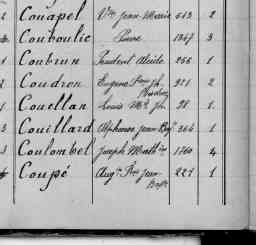 Couapel Vve Jean Marie 613 2
Couboulic Pierre 1347 3
Coubrun Prudent Alcide 256 1
Coudron Eugène Fçois Jh 921 2
Couellan Louis Mie Jh 28 1
3 Couillard Alphonse Jean Bte 264 1
3 Coulombel Joseph Math. 1760 4
Coupé Augte Fçois Jean 227 1
Bapte